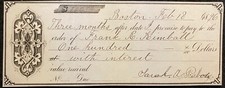 Boston, Feb 18 1890
Three months after date I promise to pay to the
order of Frank E. Kimball
One hundred Dollars
at with interest
value received
No Due